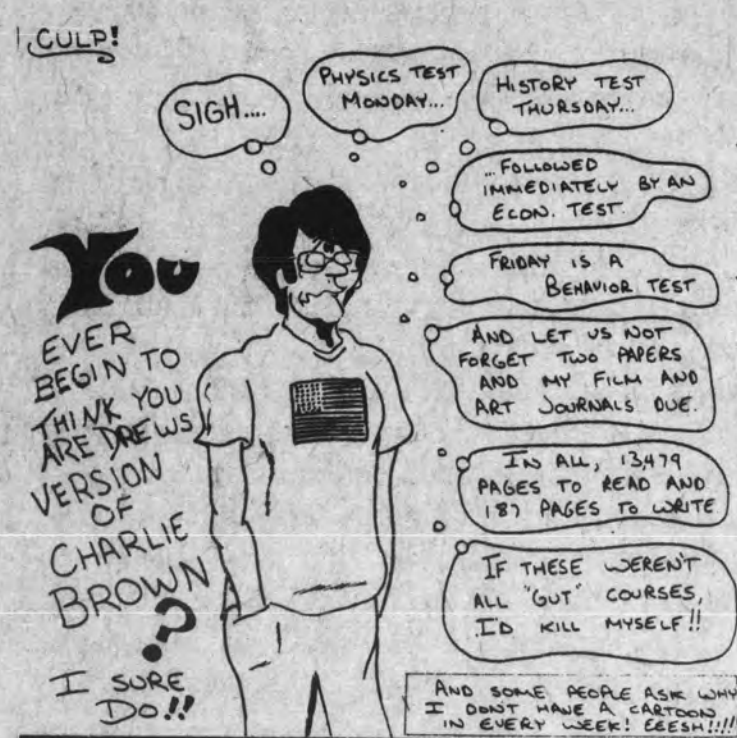 CULP!
SIGH....
PHYSICS TEST
MONDAY...
HISTORY TEST
THURSDAY...
...FOLLOWED
IMMEDIATELY BY AN
ECON. TEST.
FRIDAY IS A
BEHAVIOR TEST
AND LET US NOT
FORGET TWO PAPERS
AND MY FILM AND
ART JOURNALS DUE.
IN ALL, 13,479
PAGES TO READ AND
187 PAGES TO WRITE
IF THESE WEREN'T
ALL "GUT" COURSES,
I'D KILL MYSELF!!
YOU
EVER
BEGIN TO
THINK YOU
ARE DREWS
VERSION
OF
CHARLIE
BROWN
?
I SURE
DO!!
AND SOME PEOPLE ASK WHY
I DON'T HAVE A CARTOON
IN EVERY WEEK! EEESH!!!!